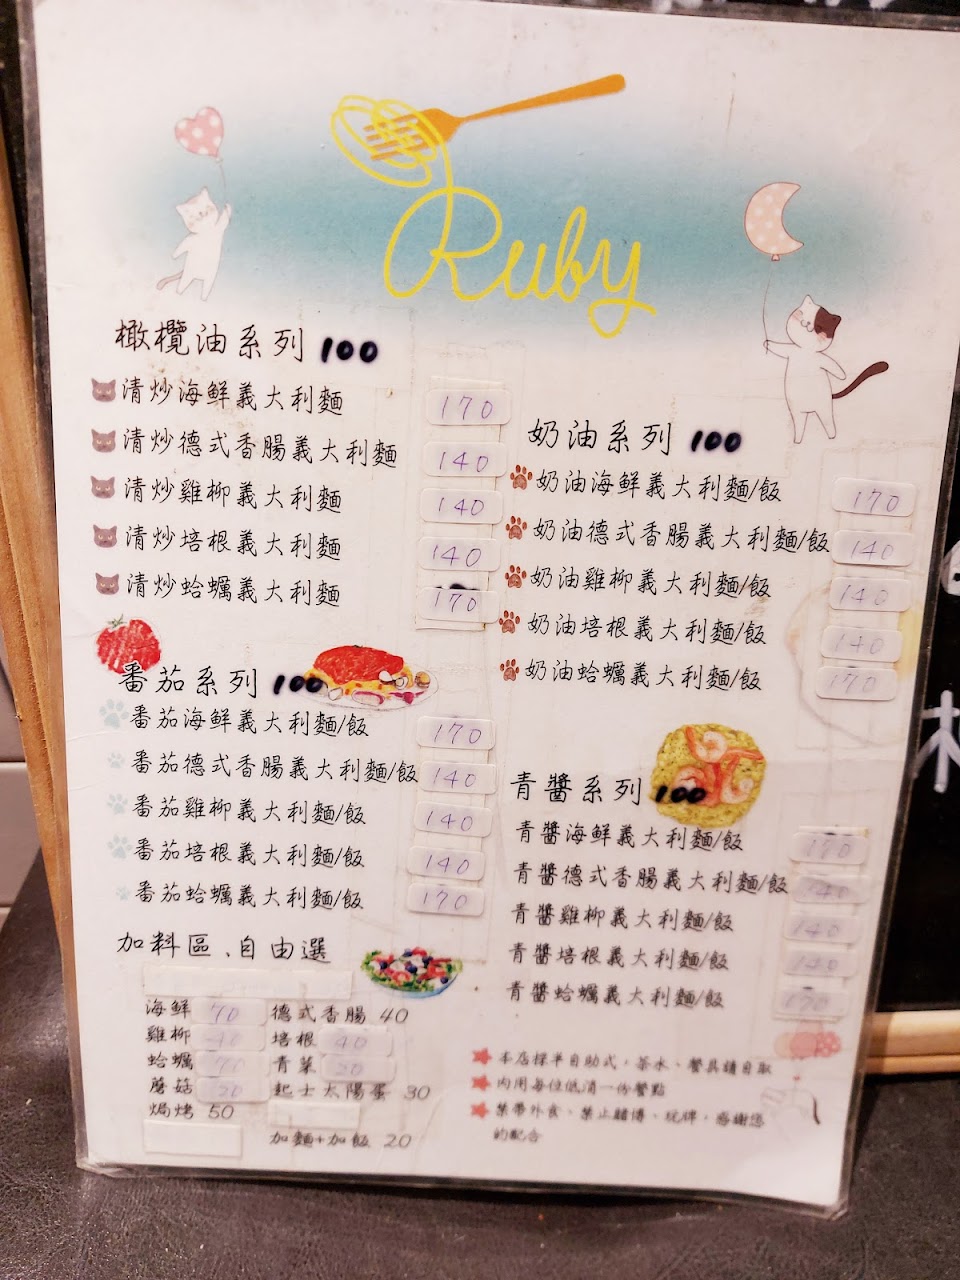 Ruby
橄欖油系列 100
清炒海鮮義大利麵 170
清炒德式香腸義大利麵 140
清炒雞柳義大利麵 140
清炒培根義大利麵 140
清炒蛤蠣義大利麵 170
番茄系列 100
番茄海鮮義大利麵/飯 170
番茄德式香腸義大利麵/飯 140
番茄雞柳義大利麵/飯 140
番茄培根義大利麵/飯 140
番茄蛤蠣義大利麵/飯 170
加料區、自由選
海鮮 70 德式香腸 40
雞柳 40 培根 40
蛤蠣 70 青菜 20
蘑菇 20 起士太陽蛋 30
焗烤 50
加麵+加飯 20
奶油系列 100
奶油海鮮義大利麵/飯 170
奶油德式香腸義大利麵/飯 140
奶油雞柳義大利麵/飯 140
奶油培根義大利麵/飯 140
奶油蛤蠣義大利麵/飯 170
青醬系列 100
青醬海鮮義大利麵/飯 170
青醬德式香腸義大利麵/飯 140
青醬雞柳義大利麵/飯 140
青醬培根義大利麵/飯 140
青醬蛤蠣義大利麵/飯 170
本店採半自助式，茶水、餐具請自取
內用每位低消一份餐點
禁帶外食、禁止賭博、玩牌，感謝您
的配合